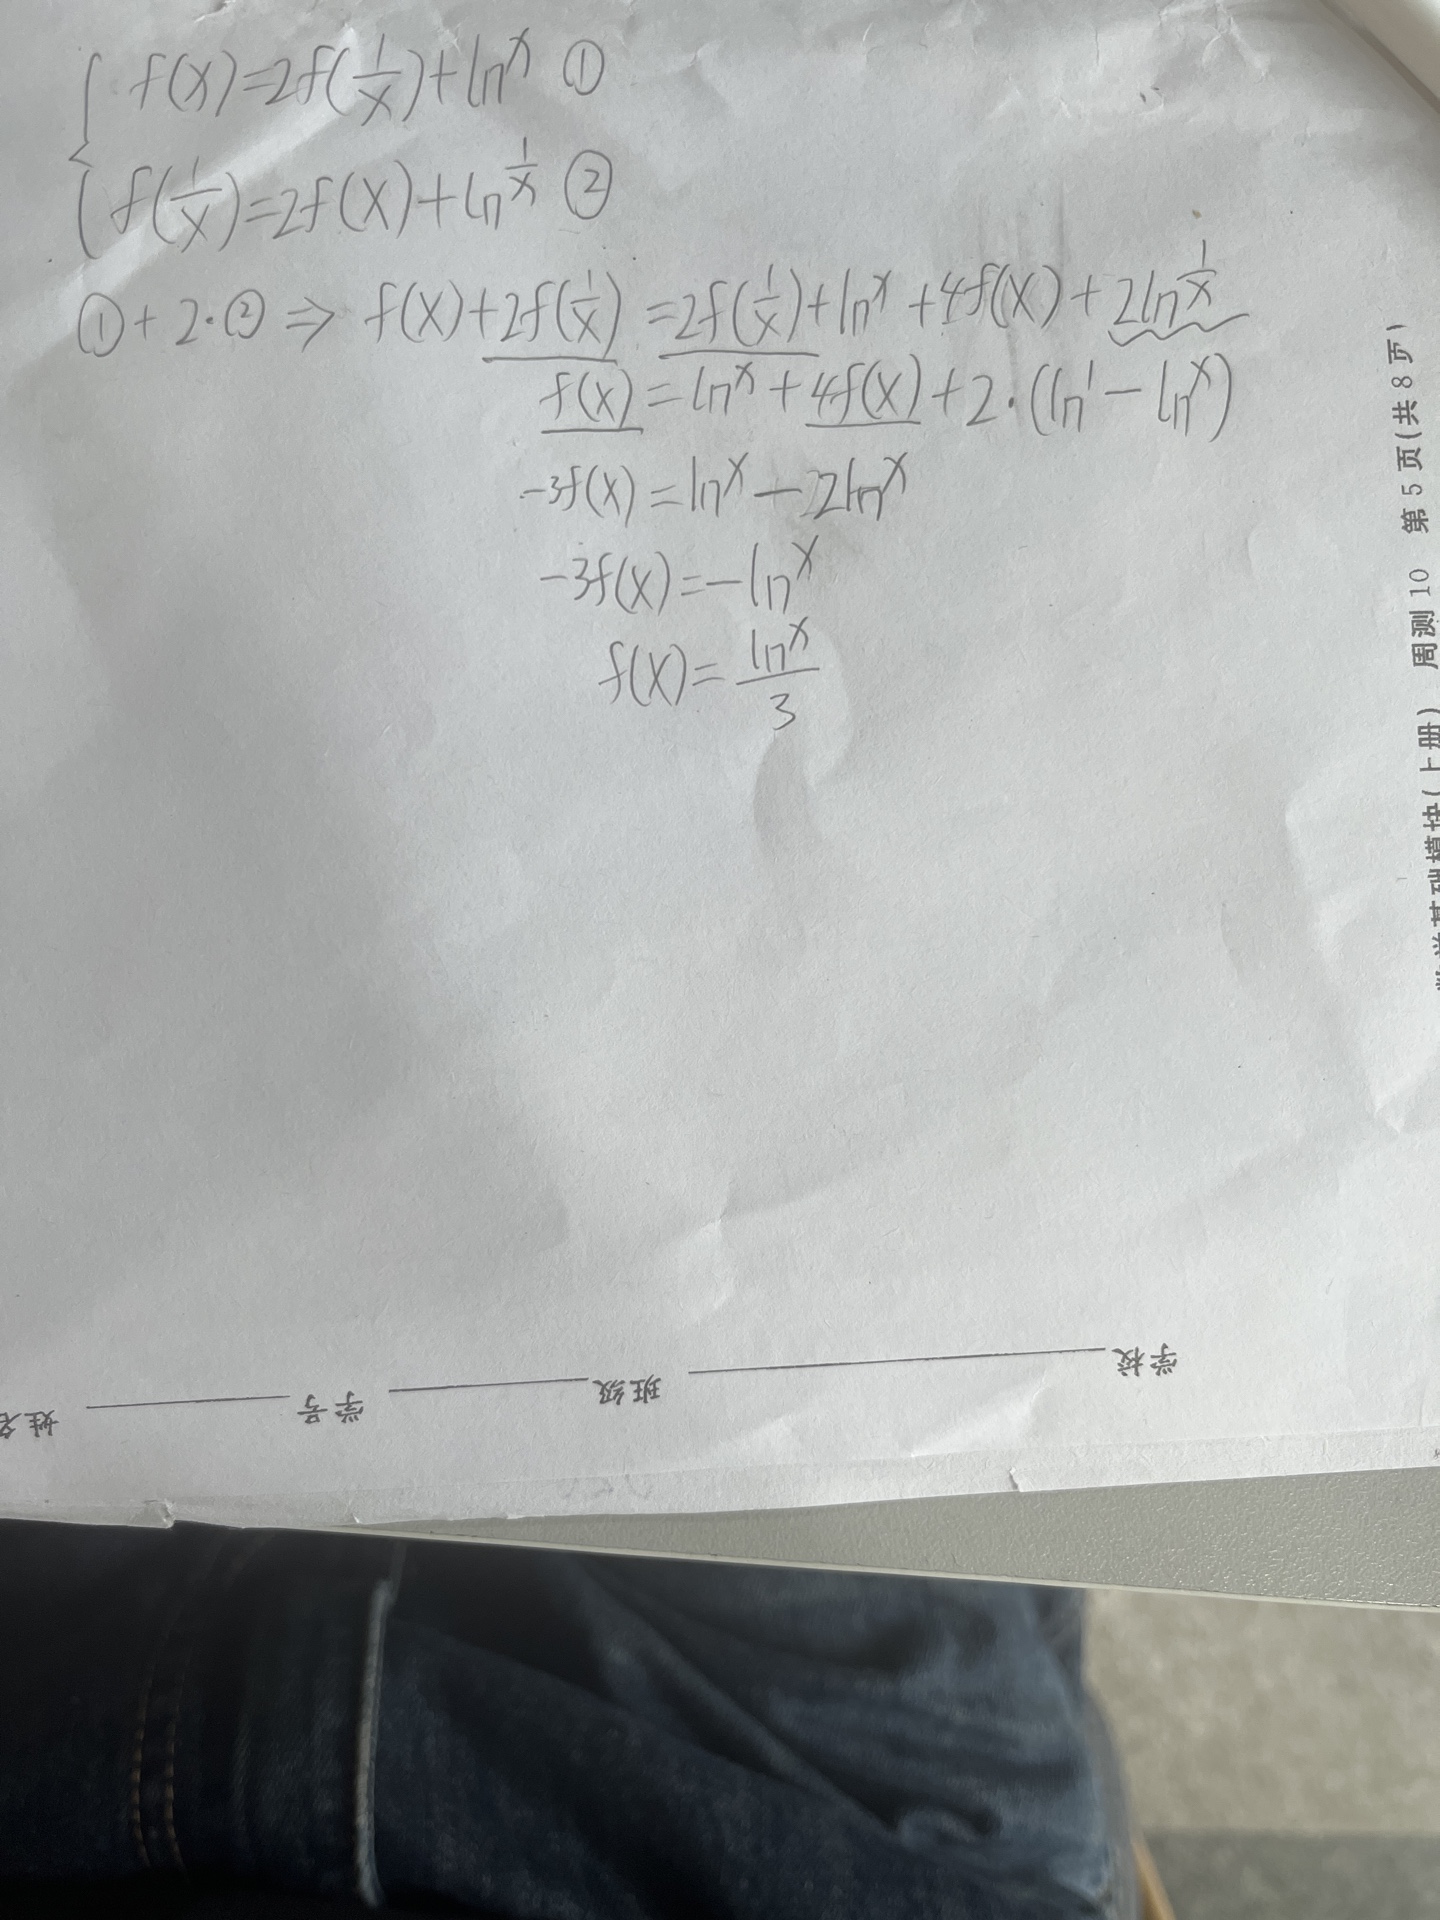 f(x)=2f(1/x)+ln^x ①
f(1/x)=2f(x)+ln^(1/x) ②
①+2·② ⇒ f(x)+2f(1/x)=2f(1/x)+ln^x+4f(x)+2ln^(1/x)
f(x)=ln^x+4f(x)+2·(ln^1-ln^x)
-3f(x)=ln^x-2ln^x
-3f(x)=-ln^x
f(x)=ln^x/3
周测10 第5页(共8页)
基础模块(上册)
学校
班级
学号
姓名